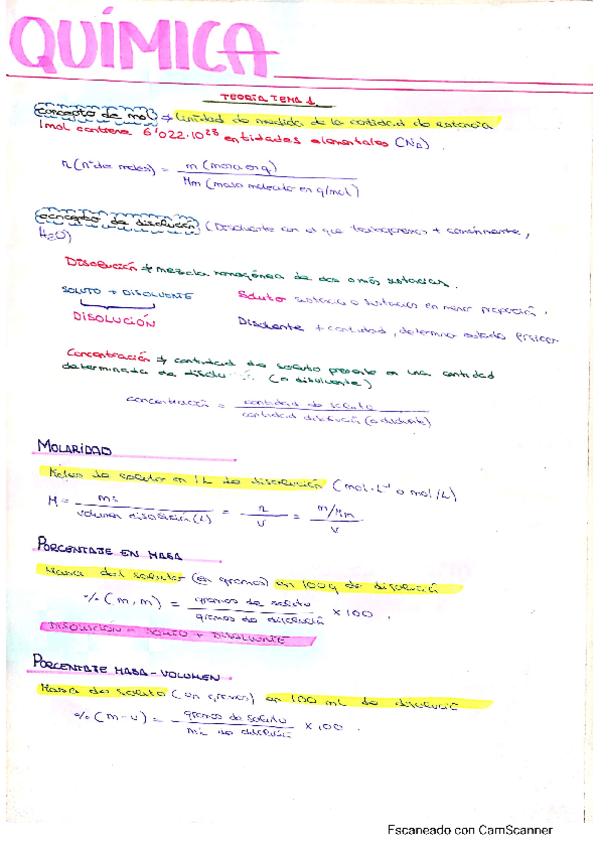 QUÍMICA
TEORÍA TEMA 1
concepto de mol → unidad de medida de la cantidad de sustancia
1 mol contiene 6'022·10²³ entidades elementales (NA).
n (nº de moles) = m (masa en g) / Mm (masa molecular en g/mol)
concepto de disolución (Disolvente con el que trabajaremos + comúnmente,
H₂O)
Disolución → mezcla homogénea de dos o más sustancias.
SOLUTO + DISOLVENTE Soluto sustancia o sustancias en menor proporción.
DISOLUCIÓN Disolvente + cantidad, determina estado
Concentración → cantidad de soluto presente en una cantidad
determinada de (o disolvente)
concentración = cantidad de soluto / cantidad disolución (o disolvente)
MOLARIDAD
Moles de soluto en 1L de disolución (mol·L⁻¹ o mol/L)
M = / volumen disolución (L) = n / V = m/Mm / V
PORCENTAJE EN MASA
Masa del soluto (en gramos) en 100g de disolución
% (m,m) = gramos de soluto / gramos de disolución × 100.
DISOLUCIÓN = SOLUTO + DISOLVENTE
PORCENTAJE MASA - VOLUMEN
Masa de soluto (en gramos) en 100 mL de disolución
% (m-v) = gramos de soluto / mL de disolución × 100.
Escaneado con CamScanner